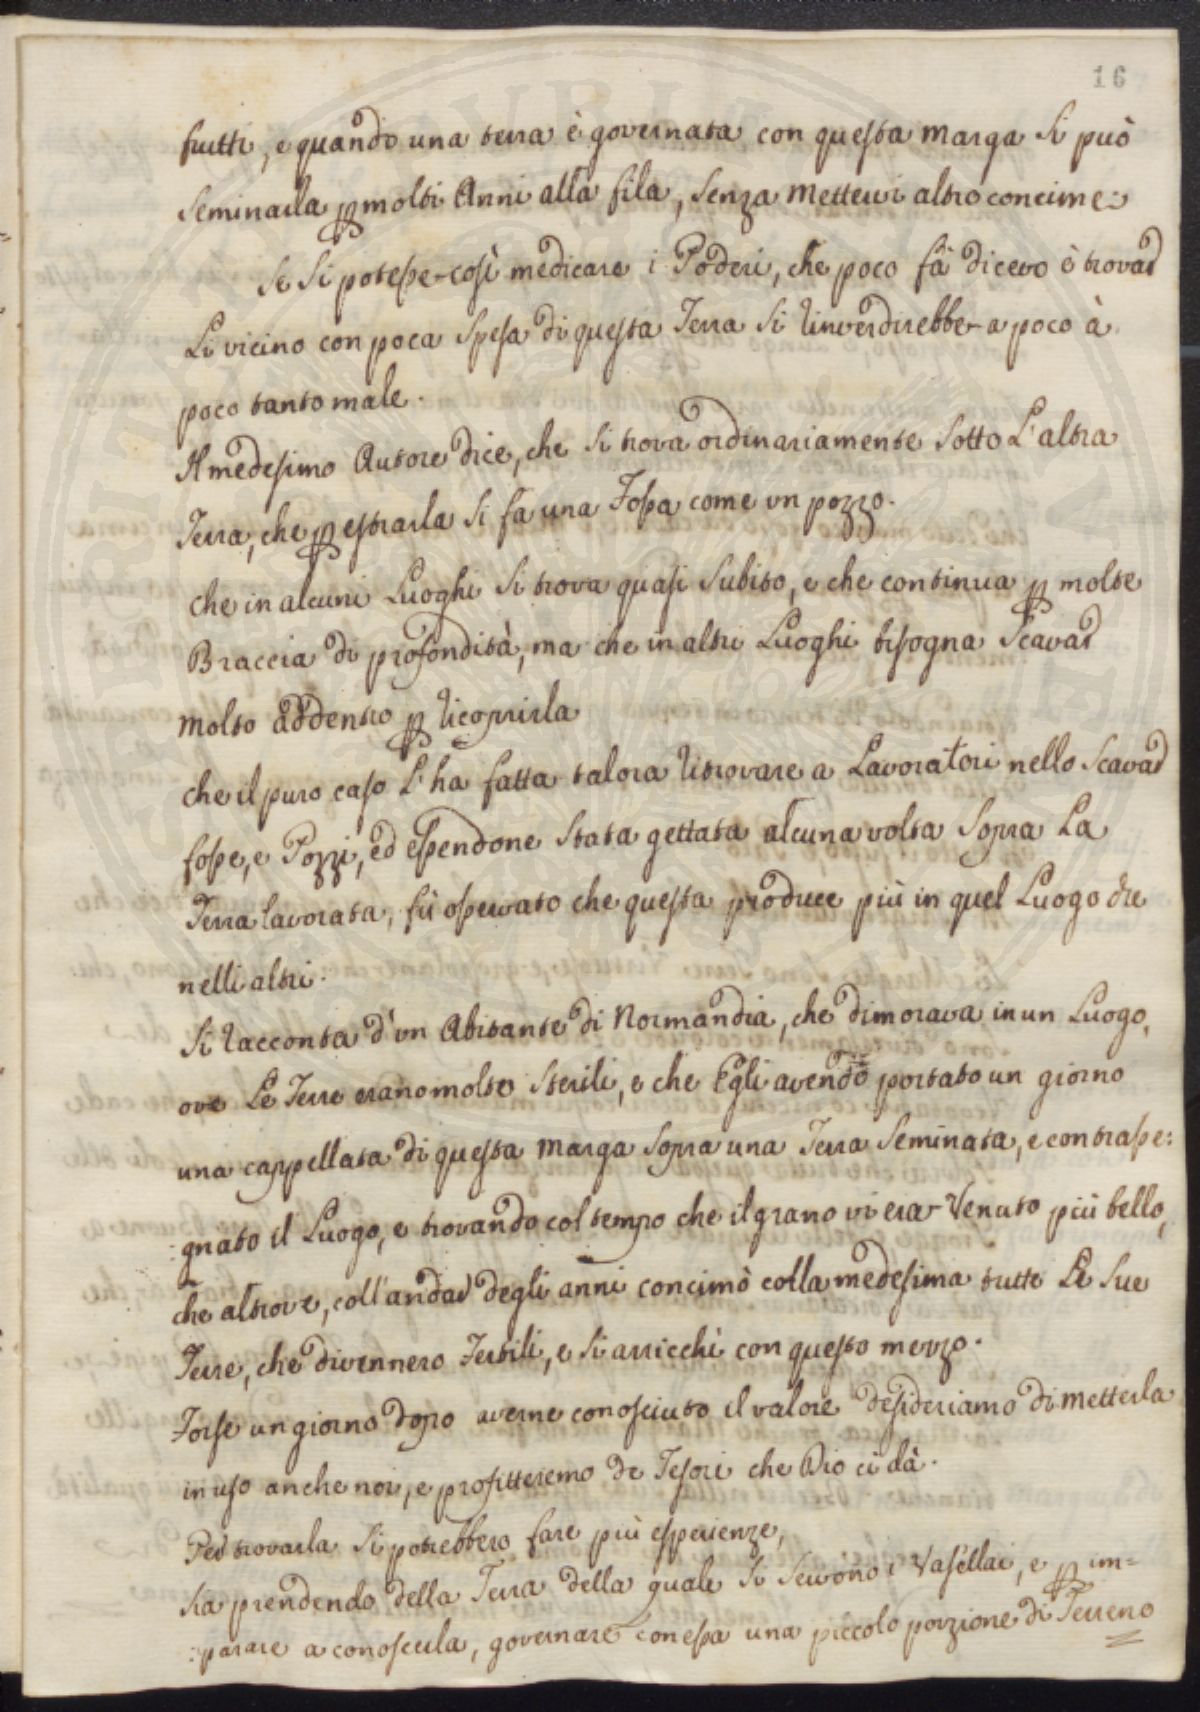 16
frutti, e quando una terra è governata con questa marga si può
seminarla p molti Anni alla fila, senza mettervi altro concime:
Se si potesse così medicare i Poderi, che poco fà dicevo è trovar
Li vicino con poca spesa di questa Terra si rinverdirebbe a poco à
poco tanto male.
Il medesimo Autore dice, che si trova ordinariamente sotto L'altra
Terra, che p estrarla si fa una Fossa come un pozzo.
che in alcuni Luoghi si trova quasi subito, e che continua p molte
Braccia di profondità, ma che in altri Luoghi bisogna scavar
molto addentro p ricoprirla
che il puro caso L'ha fatta talora ritrovare a Lavoratori nello scavar
fosse, e Pozzi, ed essendone stata gettata alcuna volta sopra La
Terra lavorata, fù osservato che questa produce più in quel Luogo che
nelli altri:
Si racconta d'un Abitante di Normandia, che dimorava in un Luogo,
ove Le Terre erano molto sterili, e che Egli avendo portato un giorno
una cappellata di questa marga sopra una Terra seminata, e contrasse:
:gnato il Luogo, e trovando col tempo che il grano vi era Venuto più bello,
che altrove, coll'andar degli anni concimò colla medesima tutte Le sue
Terre, che divennero Fertili, e si arricchì con questo mezzo.
Forse un giorno dopo averne conosciuto il valore desideriamo di metterla
in uso anche noi, e profitteremo de Tesori che Dio ci dà.
Per trovarla si potrebbero fare più esperienze,
sia prendendo della Terra della quale si servono i Vasellai, e p im=
:parare a conoscerla, governare con essa una piccolo porzione di Terreno